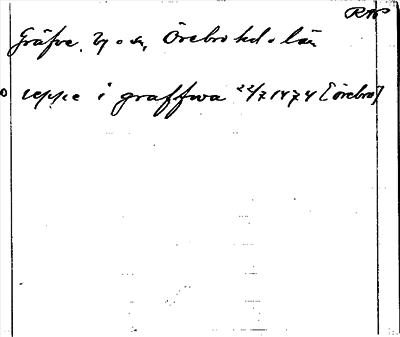 RAP
Gräfve, by o sn, Örebro hd o län
uppe i graffwa 22/7 1474 [Örebro]